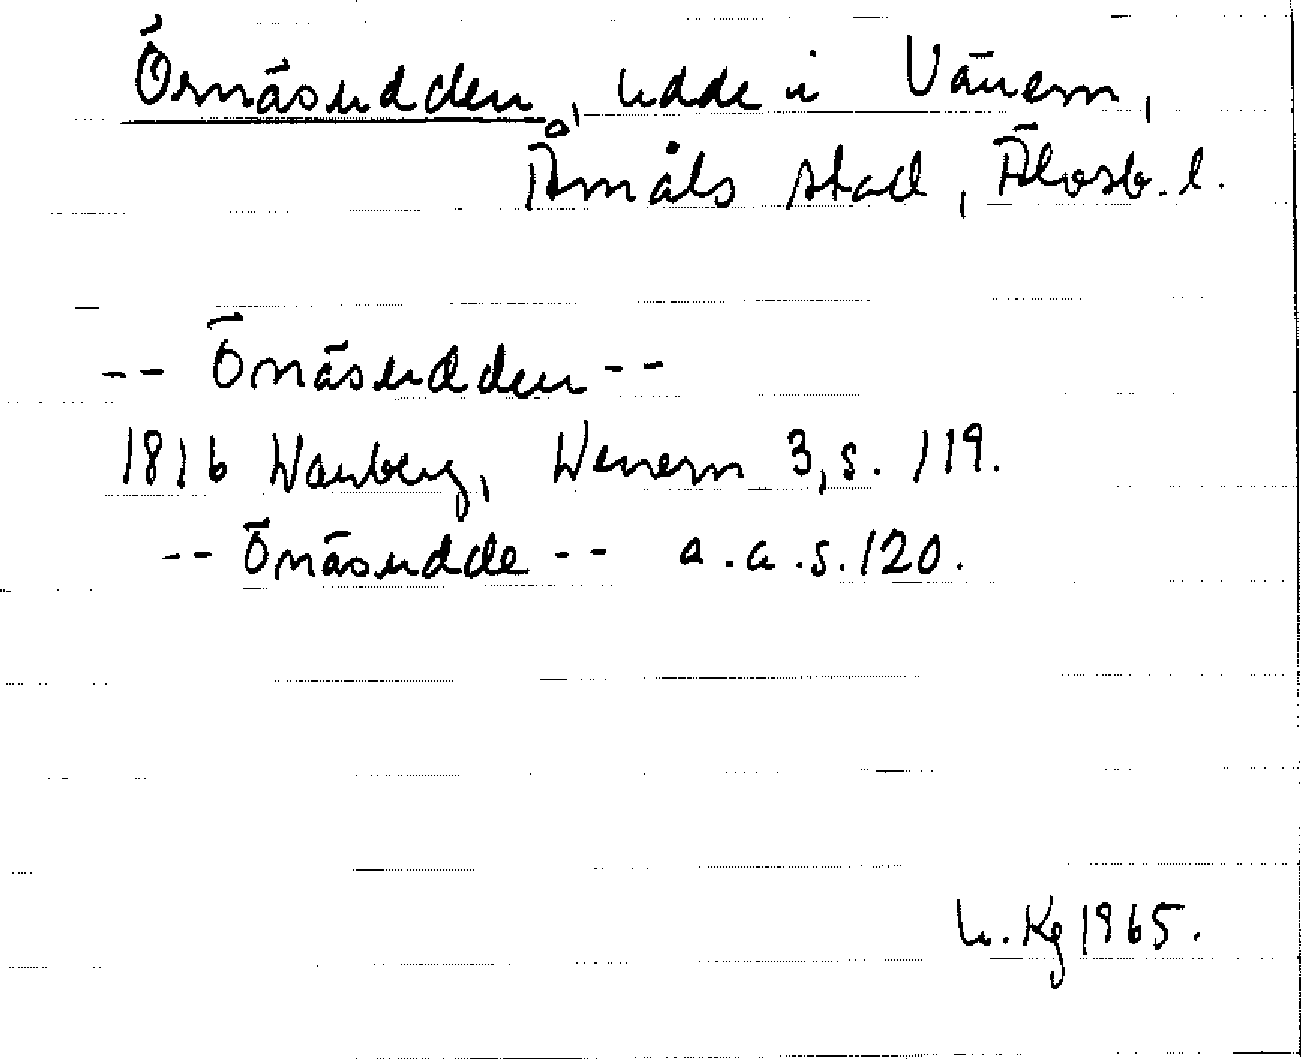 Örnäsudden, udde i Vänern,
Åmåls stad, Älvsb. l.
-- Önäsudden --
1816 Warberg, Wenern 3, s. 119.
-- Önäsudde -- a.a.s. 120.
Kg 1965.